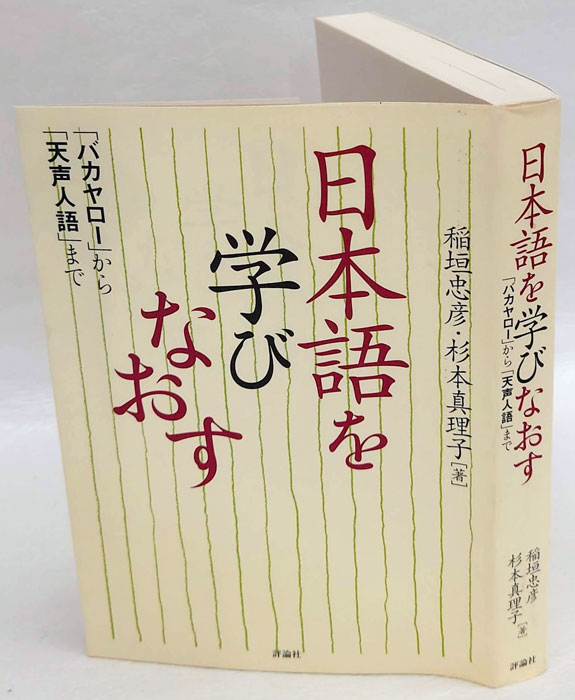 稲垣忠彦・杉本真理子[著]
日本語を
学び
なおす
「バカヤロー」から
「天声人語」まで
評論社
日本語を学びなおす
「バカヤロー」から「天声人語」まで
稲垣忠彦
杉本真理子[著]
評論社